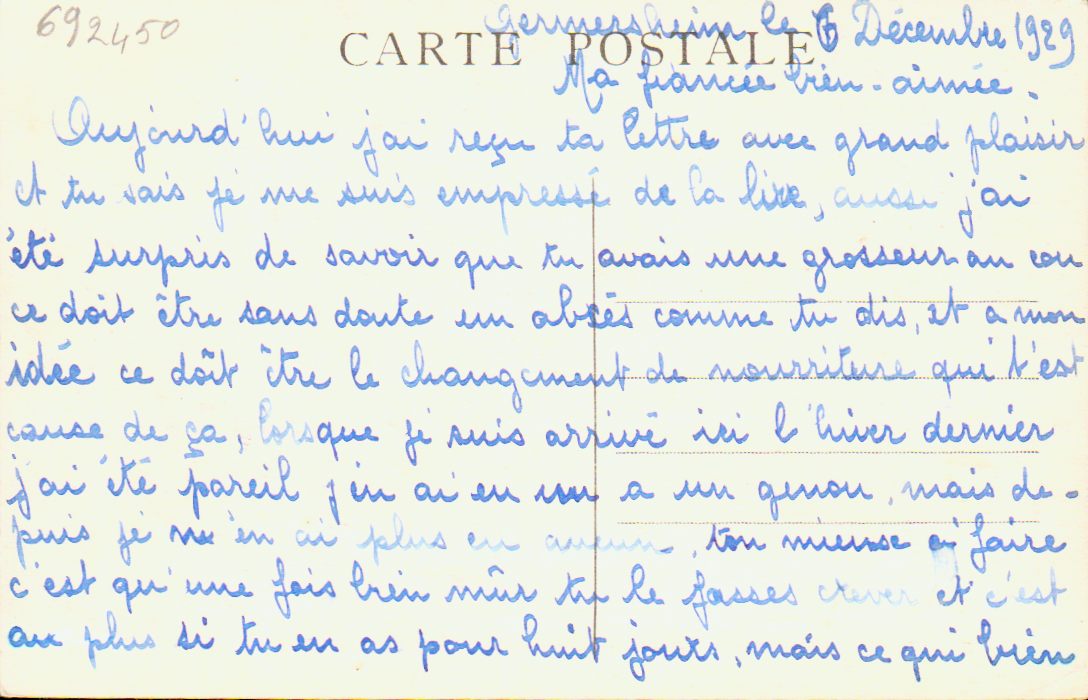 692450
CARTE POSTALE
Germersheim le 6 Décembre 1929
Ma fiancée bien-aimée.
Aujourd'hui j'ai reçu ta lettre avec grand plaisir
et tu sais je me suis empressé de la lire, aussi j'ai
été surpris de savoir que tu avais une grosseur au cou
ce doit être sans doute un abcès comme tu dis, et a mon
idée ce doît être le changement de nourriture qui t'est
cause de ça, lorsque je suis arrivé ici l'hiver dernier
j'ai été pareil j'en ai eu un a un genou, mais de-
puis je n'en ai plus eu aucun, ton mieux à faire
c'est qu'une fois bien mûr tu le fasses crever et c'est
au plus si tu en as pour huit jours, mais ce qui bien